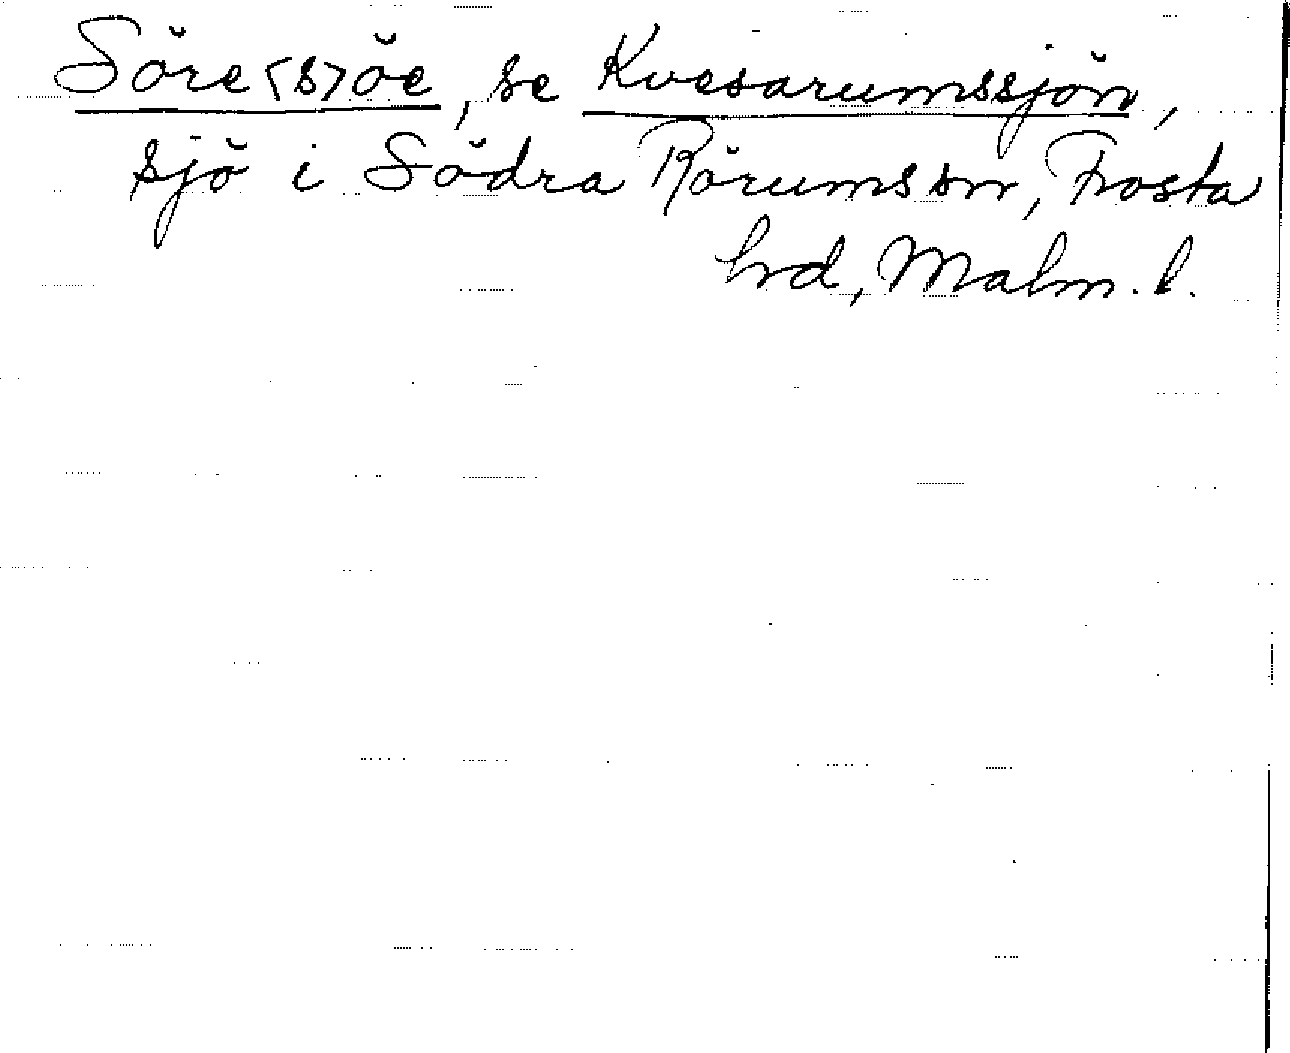 Söre<s>öe, se Kvesarumssjön,
sjö i Södra Rörums sn, Frosta
hd, Malm. l.